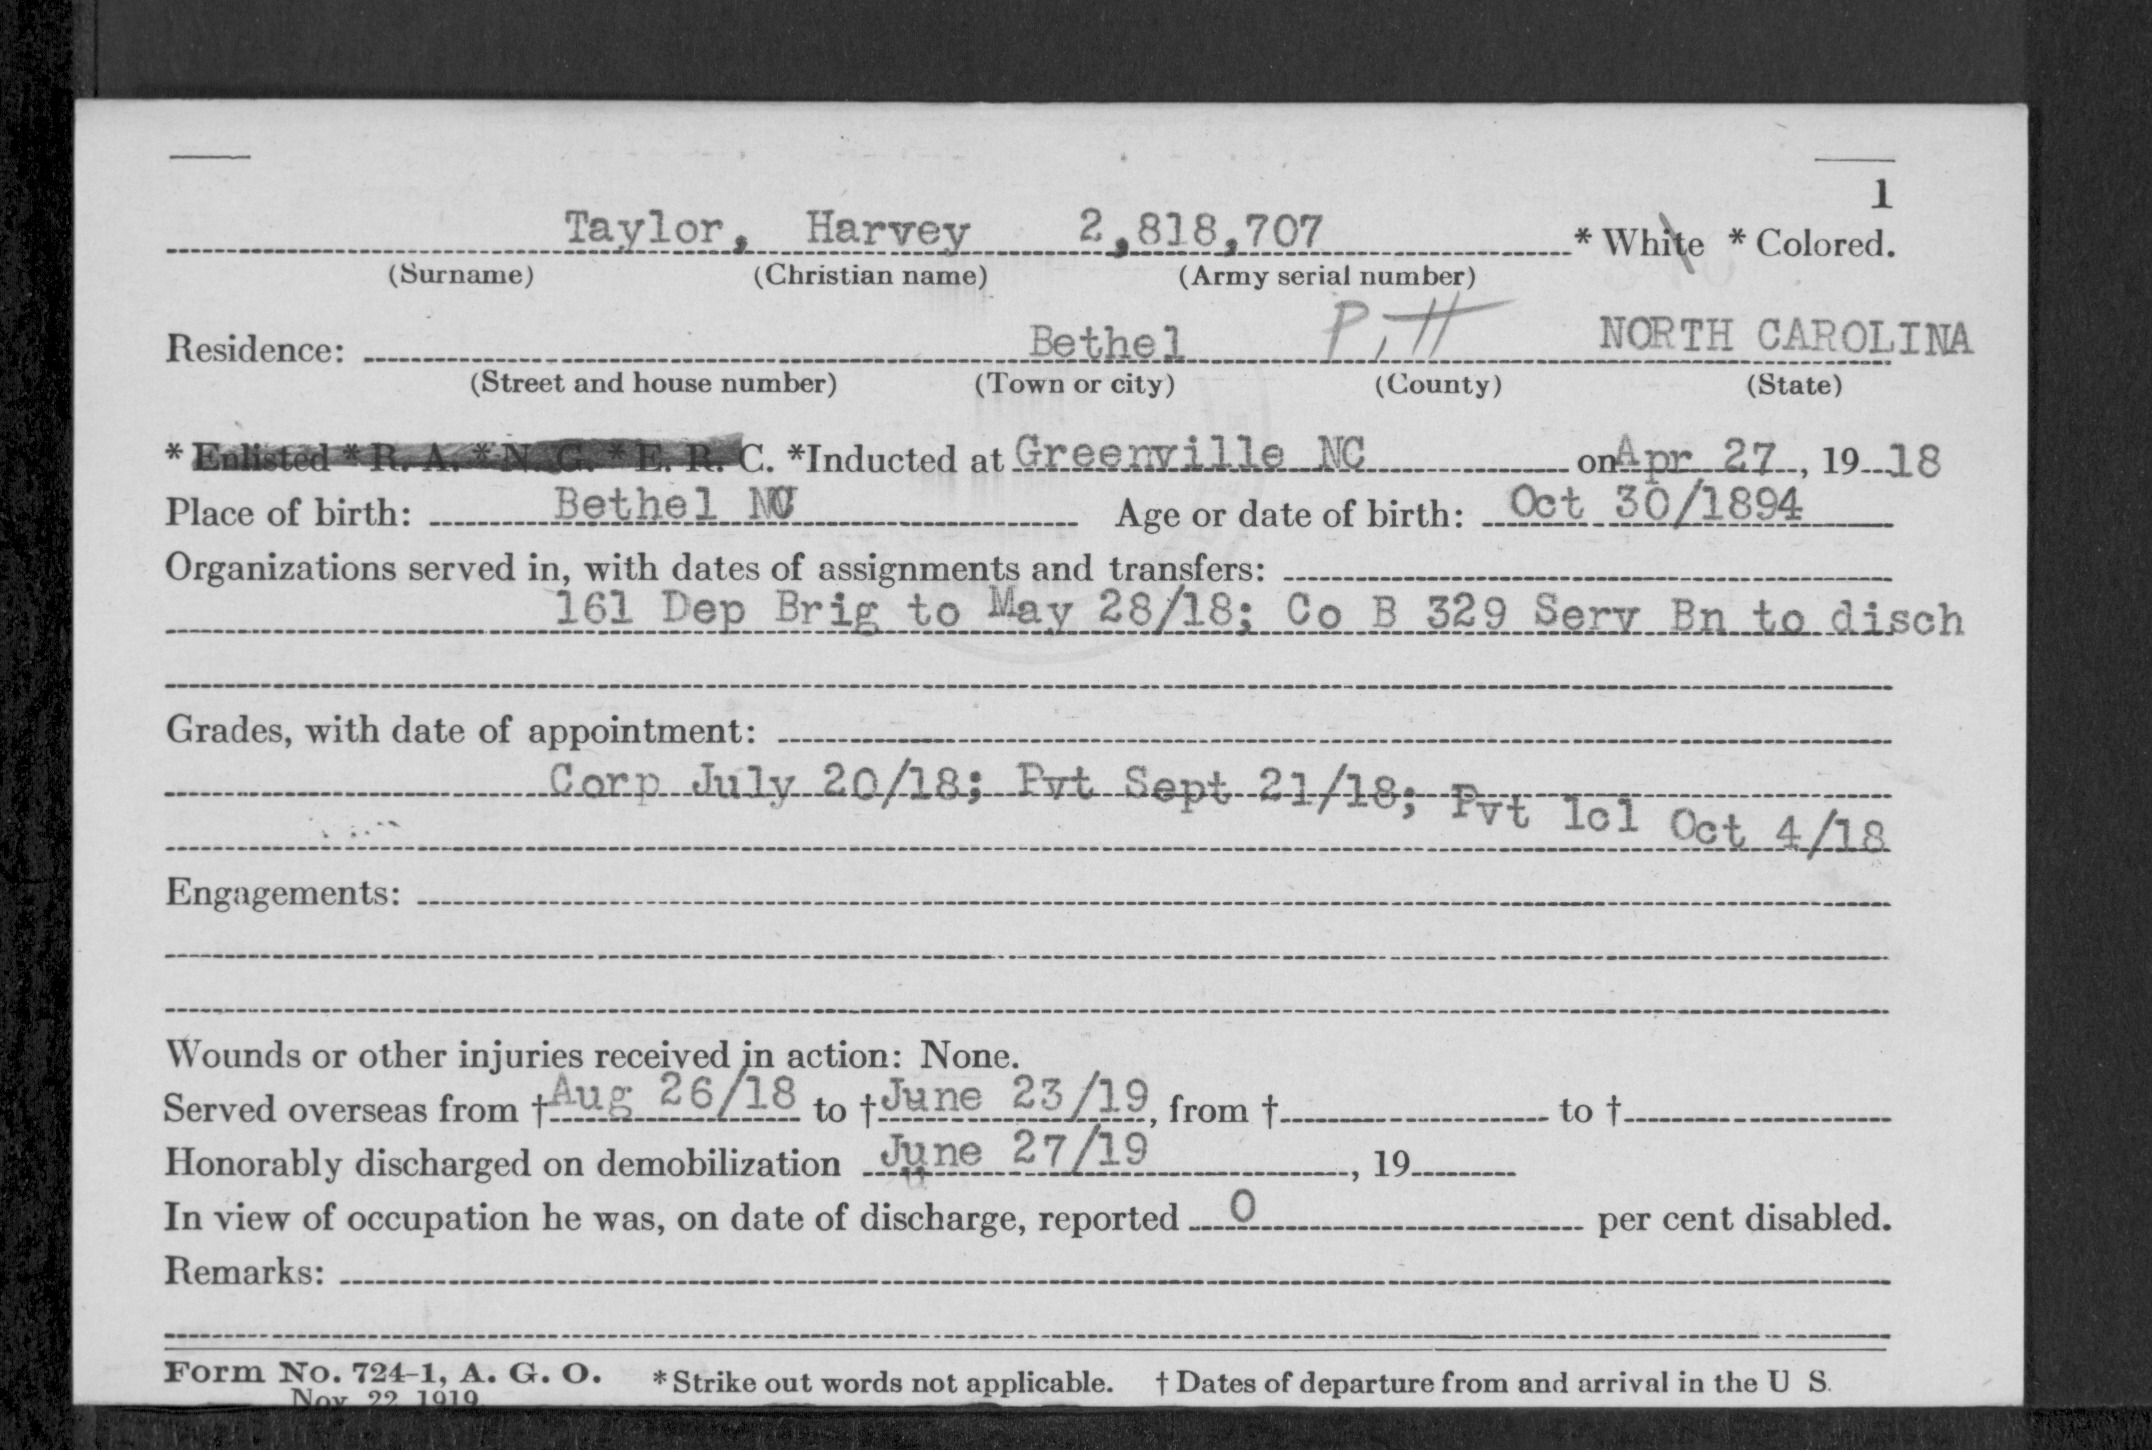 1
Taylor, Harvey 2,818,707 * White * Colored.
(Surname) (Christian name) (Army serial number)
Residence: Bethel Pitt NORTH CAROLINA
(Street and house number) (Town or city) (County) (State)
* Enlisted * R. A. * N. G. * E. R. C. *Inducted at Greenville NC on Apr 27, 19 18
Place of birth: Bethel NC Age or date of birth: Oct 30/1894
Organizations served in, with dates of assignments and transfers:
161 Dep Brig to May 28/18; Co B 329 Serv Bn to disch
Grades, with date of appointment:
Corp July 20/18; Pvt Sept 21/18; Pvt 1cl Oct 4/18
Engagements:
Wounds or other injuries received in action: None.
Served overseas from † Aug 26/18 to † June 23/19, from † to †
Honorably discharged on demobilization June 27/19, 19
In view of occupation he was, on date of discharge, reported 0 per cent disabled.
Remarks:
Form No. 724-1, A. G. O. * Strike out words not applicable. † Dates of departure from and arrival in the U S.
Nov. 22, 1919